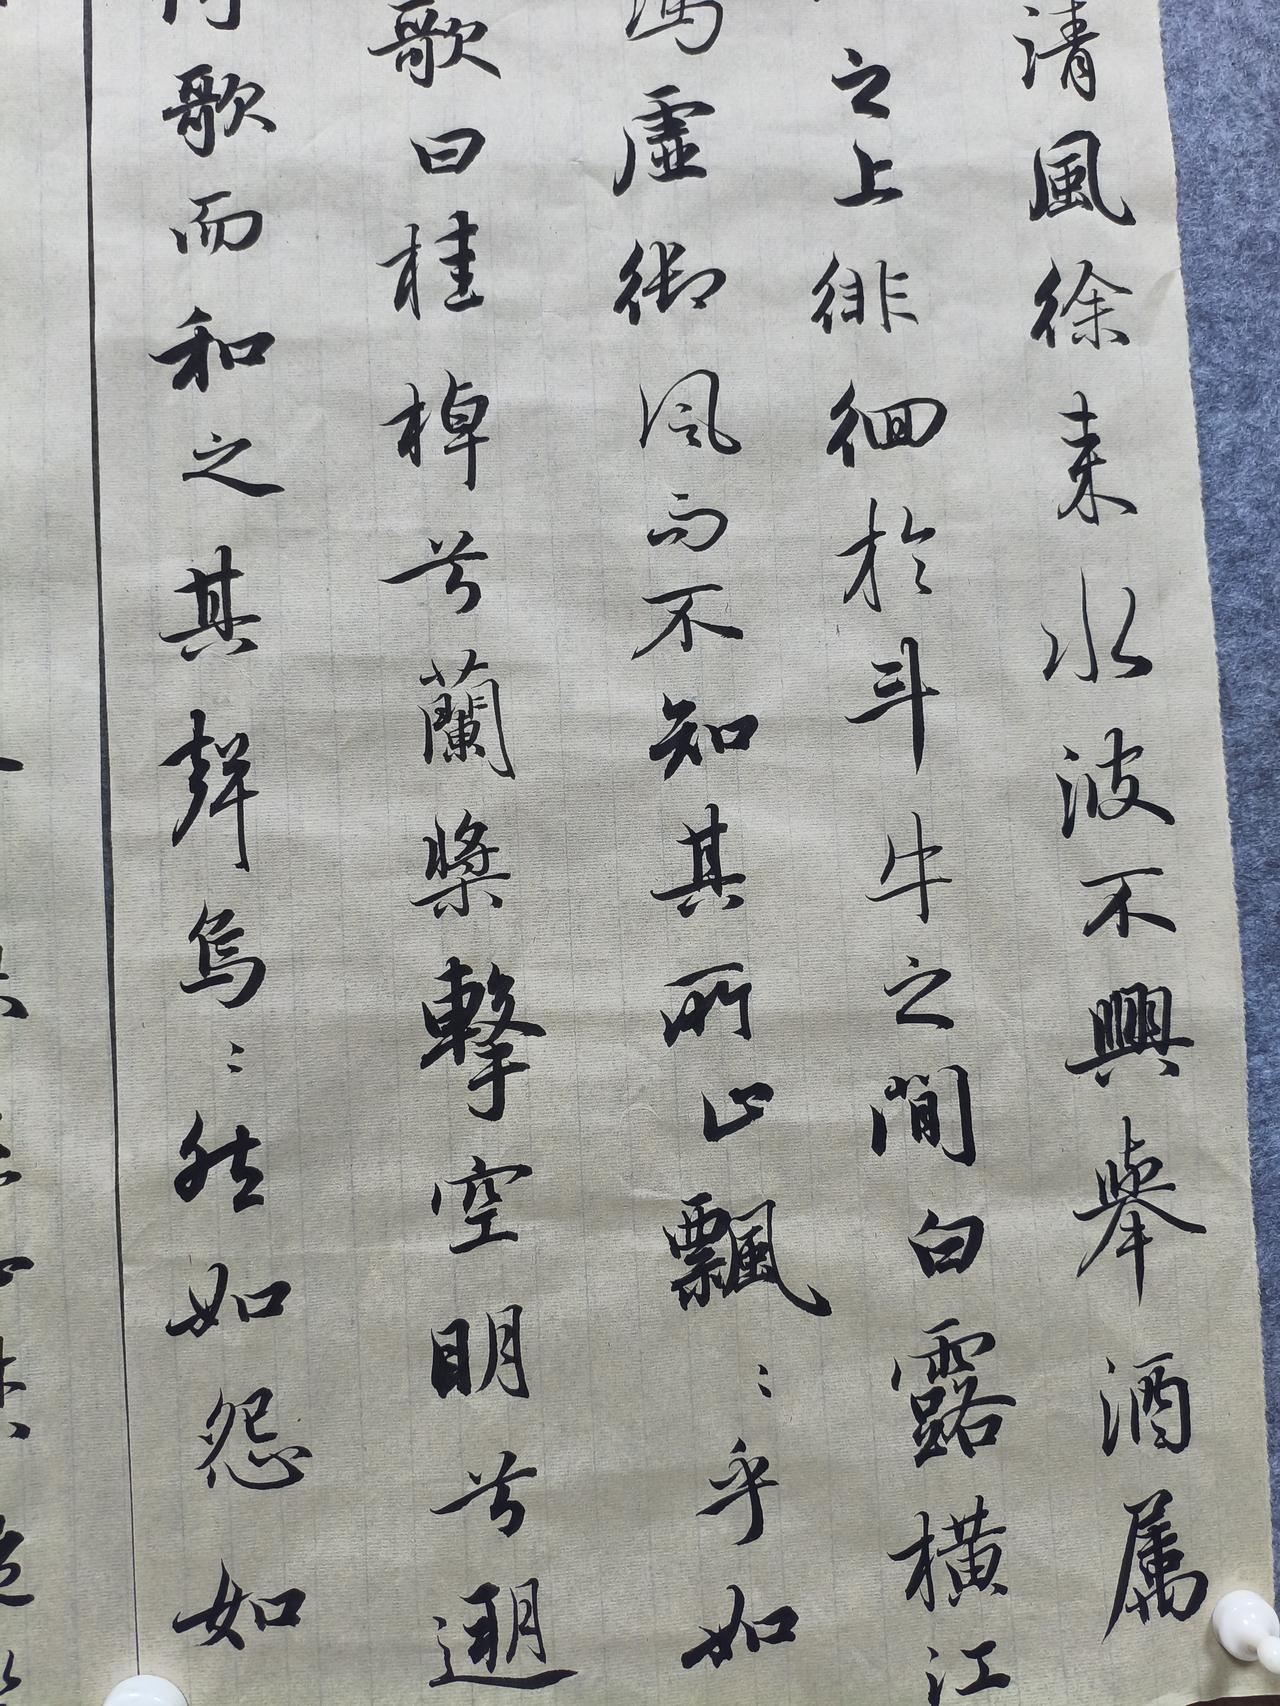 清風徐来水波不興舉酒属
之上徘徊於斗牛之間白露横江
馮虛御风而不知其所止飄〻乎如
歌曰桂棹兮蘭槳擊空明兮遡
歌而和之其聲烏〻然如怨如